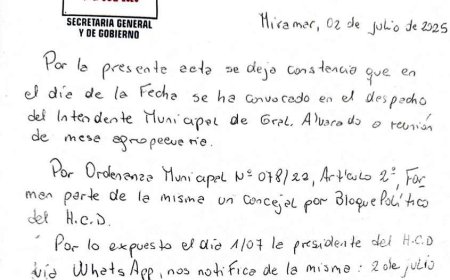 SECRETARIA GENERAL
Y DE GOBIERNO
Miramar, 02 de julio de 2025
Por la presente acta se deja constancia que en
el día de la Fecha se ha convocado en el despacho
del Intendente Municipal de Gral. Alvarado a reunión
de mesa agropecuaria.
Por Ordenanza Municipal Nº 078/22, Artículo 2º, For
man parte de la misma un concejal por Bloque Político
del H.C.D.
Por lo expuesto el día 1/07 le presidente del H.C.D
vía WhatsApp, nos notifica de la misma: 2 de julio